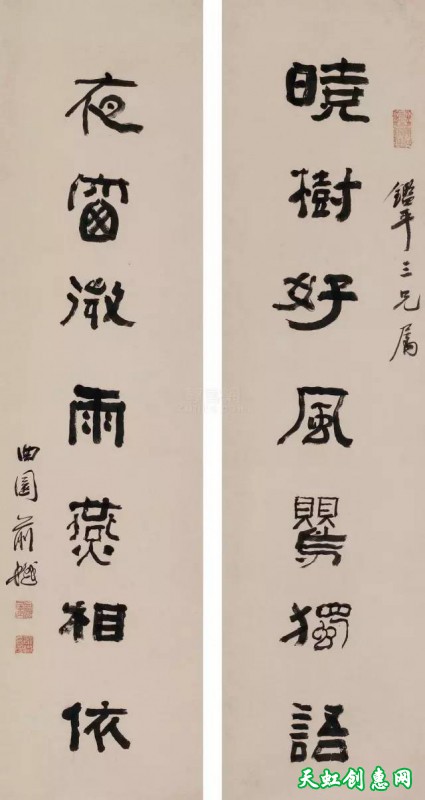 鑑平三兄屬
曉樹好風鶯獨語
夜窗微雨燕相依
曲園俞樾
天虹创惠网